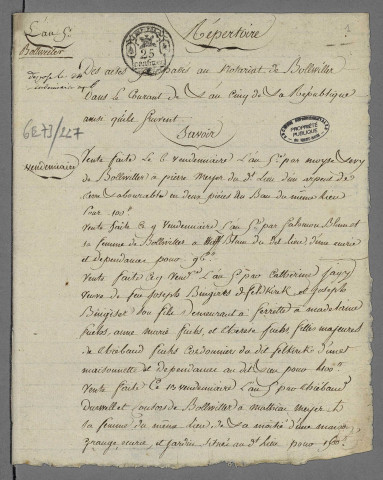 L'an 5e
Bollwiler
Répertoire
25
centimes
Des actes passés au Notariat de Bollwiler
Dans le Courant de L'an Cinq de La République
ainsi qu'ils Suivent
Savoir
6E73/227
PROPRIÉTÉ
PUBLIQUE
vendemiaire
Vente faite le 6 vendemiaire L'an 5e par
de Bollwiler a pierre Meyer du dt Lieu d'un arpent de
terre Labourable en deux pièces au Ban du même Lieu
pour 100tt
Vente faite Le 9 Vendemiaire L'an 5e par Salomon Blum et
sa femme de Bollwiler a Blum du dt Lieu d'une ecurie
et dependances pour 96tt
Vente faite Le 9 Vendre L'an 5e par Catherine
veuve de feu Joseph de feldkirck et Joseph
son fils demeurant a ferrette a madelaine
fuchs, anne marie fuchs, et therese fuchs, filles majeures
de thiebaud fuchs Cordonnier du dit felkirck d'une
maisonnette et dependances au dit Lieu pour
Vente faite Le 13 vendemiaire L'an 5e par thiebaud
de Bollwiler a mathieu meyer et
sa femme du meme Lieu de La moitié d'une maison
grange, ecurie, et jardin situés au dt Lieu pour